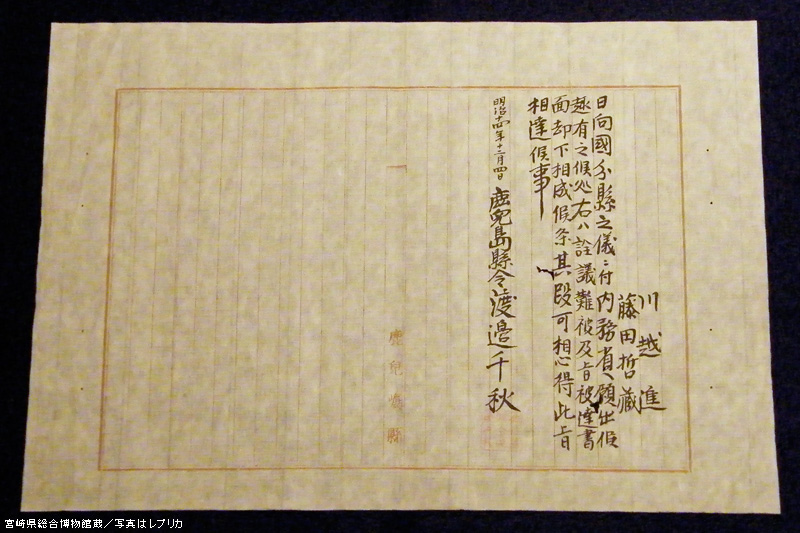 川越進
藤田哲蔵
日向國分縣之儀ニ付内務省ヘ願出候
趣有之候処右ハ詮議難被及旨被達書
面却下相成候条其段可相心得此旨
相達候事
明治十四年十二月四日 鹿児島縣令渡邉千秋
鹿兒島縣
宮崎県総合博物館蔵／写真はレプリカ